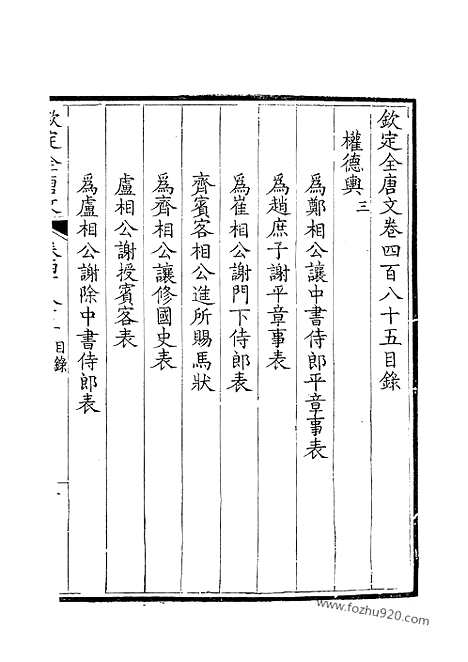 欽定全唐文卷四百八十五目錄
權德輿 三
爲鄭相公讓中書侍郎平章事表
爲趙庶子謝平章事表
爲崔相公謝門下侍郎表
齊賓客相公進所賜馬狀
爲齊相公讓修國史表
盧相公謝授賓客表
爲盧相公謝除中書侍郎表
欽定全唐文
目錄
www.fozhu920.com